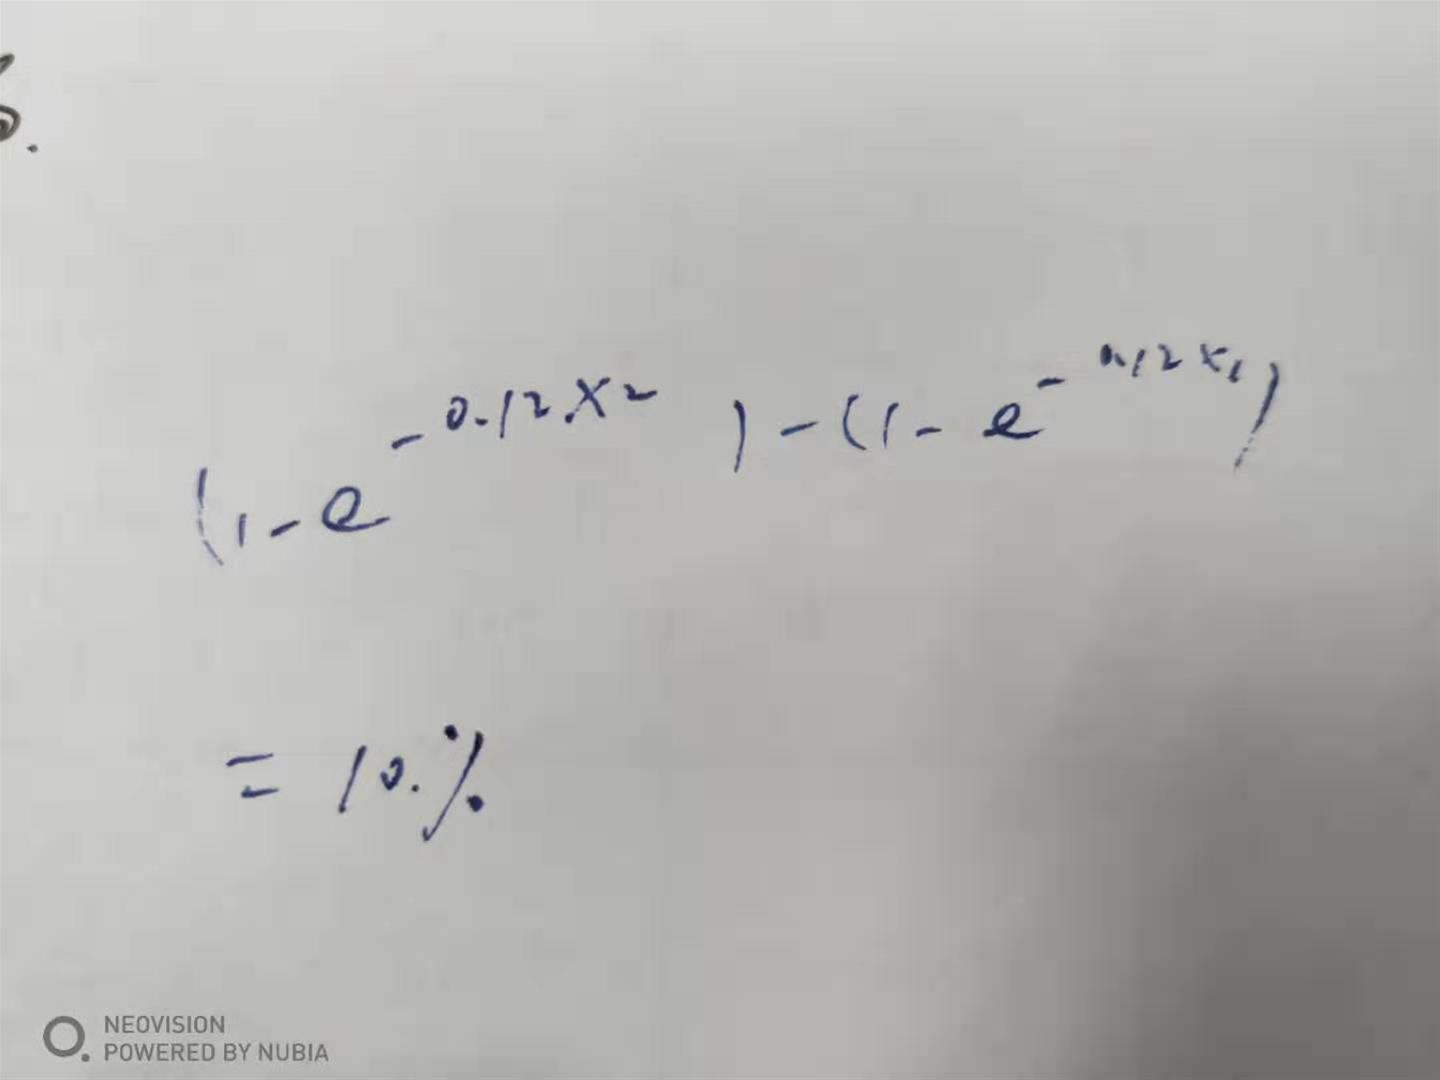 6.
(1-e^{-0.12×2})-(1-e^{-0.12×1})
=10.%
NEOVISION
POWERED BY NUBIA